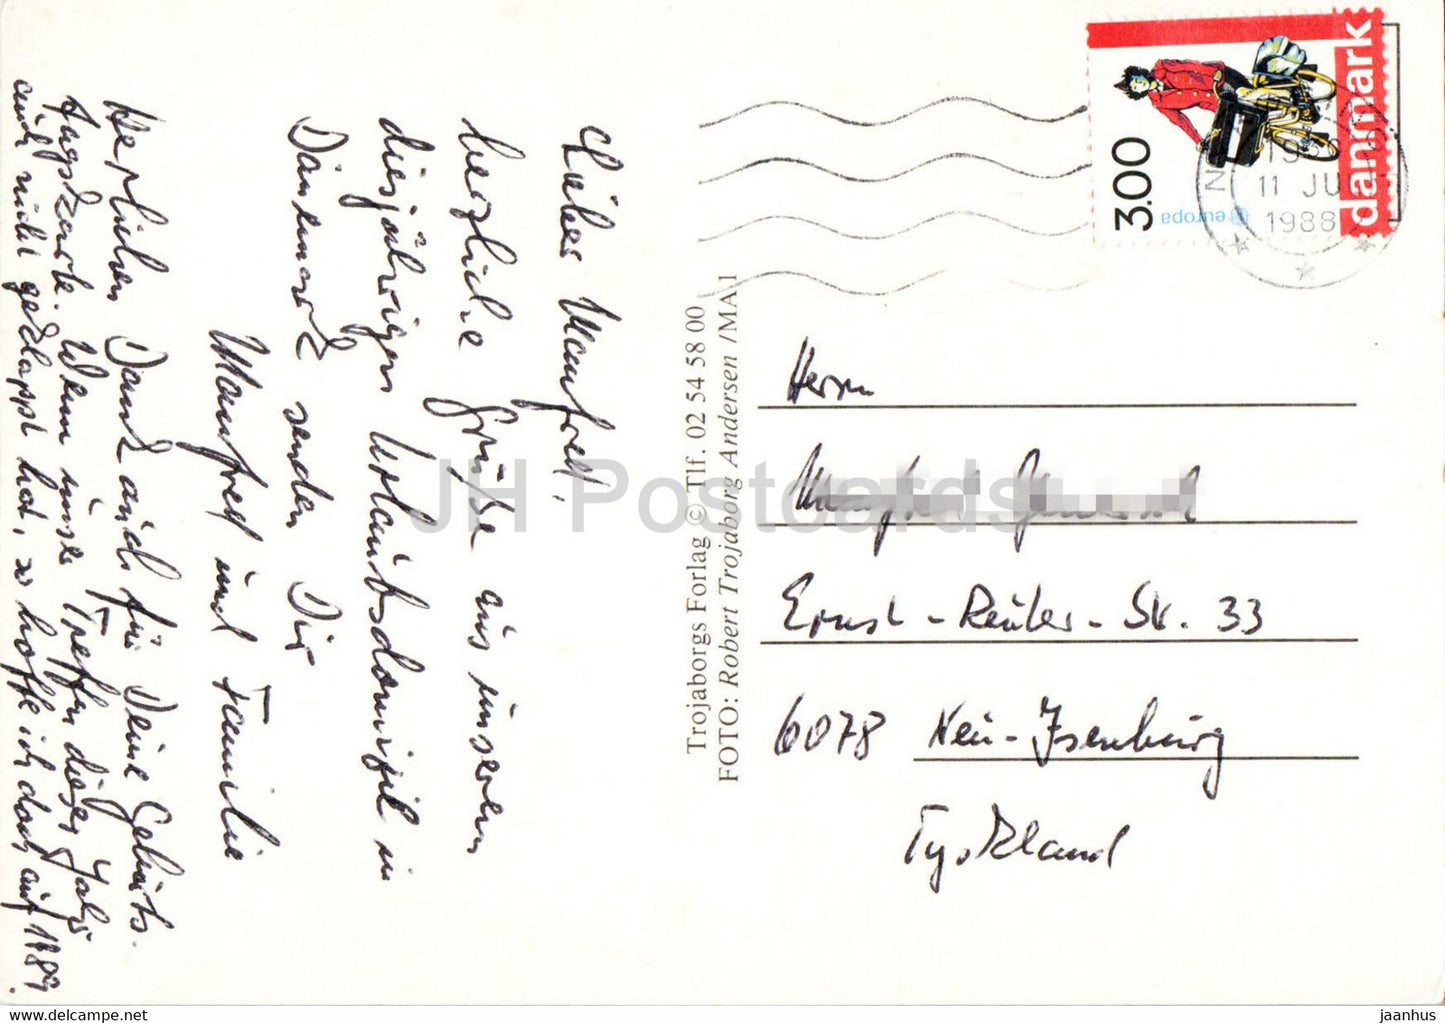 Lieber Manfred,
herzliche Grüße aus unserem
diesjährigen Urlaubsdomizil in
Dänemark senden Dir
Manfred und Familie
Herzlichen Dank auch für Deine Geburts-
tagskarte. Wenn unser Treffen dieses Jahr
auch nicht geklappt hat, so hoffe ich doch auf 1989.
Trojaborgs Forlag © Tlf. 02 54 58 00
FOTO: Robert Trojaborg Andersen /MA 1
danmark
3.00
europa
11 JU
1988
Herrn
Manfred
Ernst-Reuter-Str. 33
6078 Neu-Isenburg
Tyskland
JH Postcards
hippostcard.com/store/jaanhus